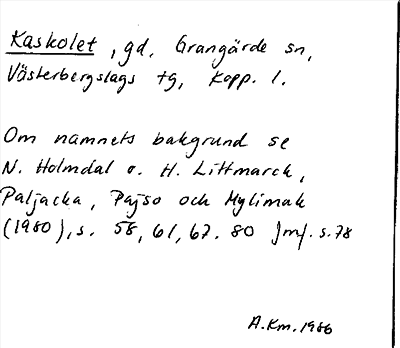 Kaskolet, gd, Grangärde sn,
Västerbergslags tg, Kopp. l.
Om namnets bakgrund se
N. Holmdal o. H. Littmarck,
Paljacka, Pajso och Mylimak
(1980), s. 58, 61, 67. 80 Jmf. s. 78
A.Km. 1986